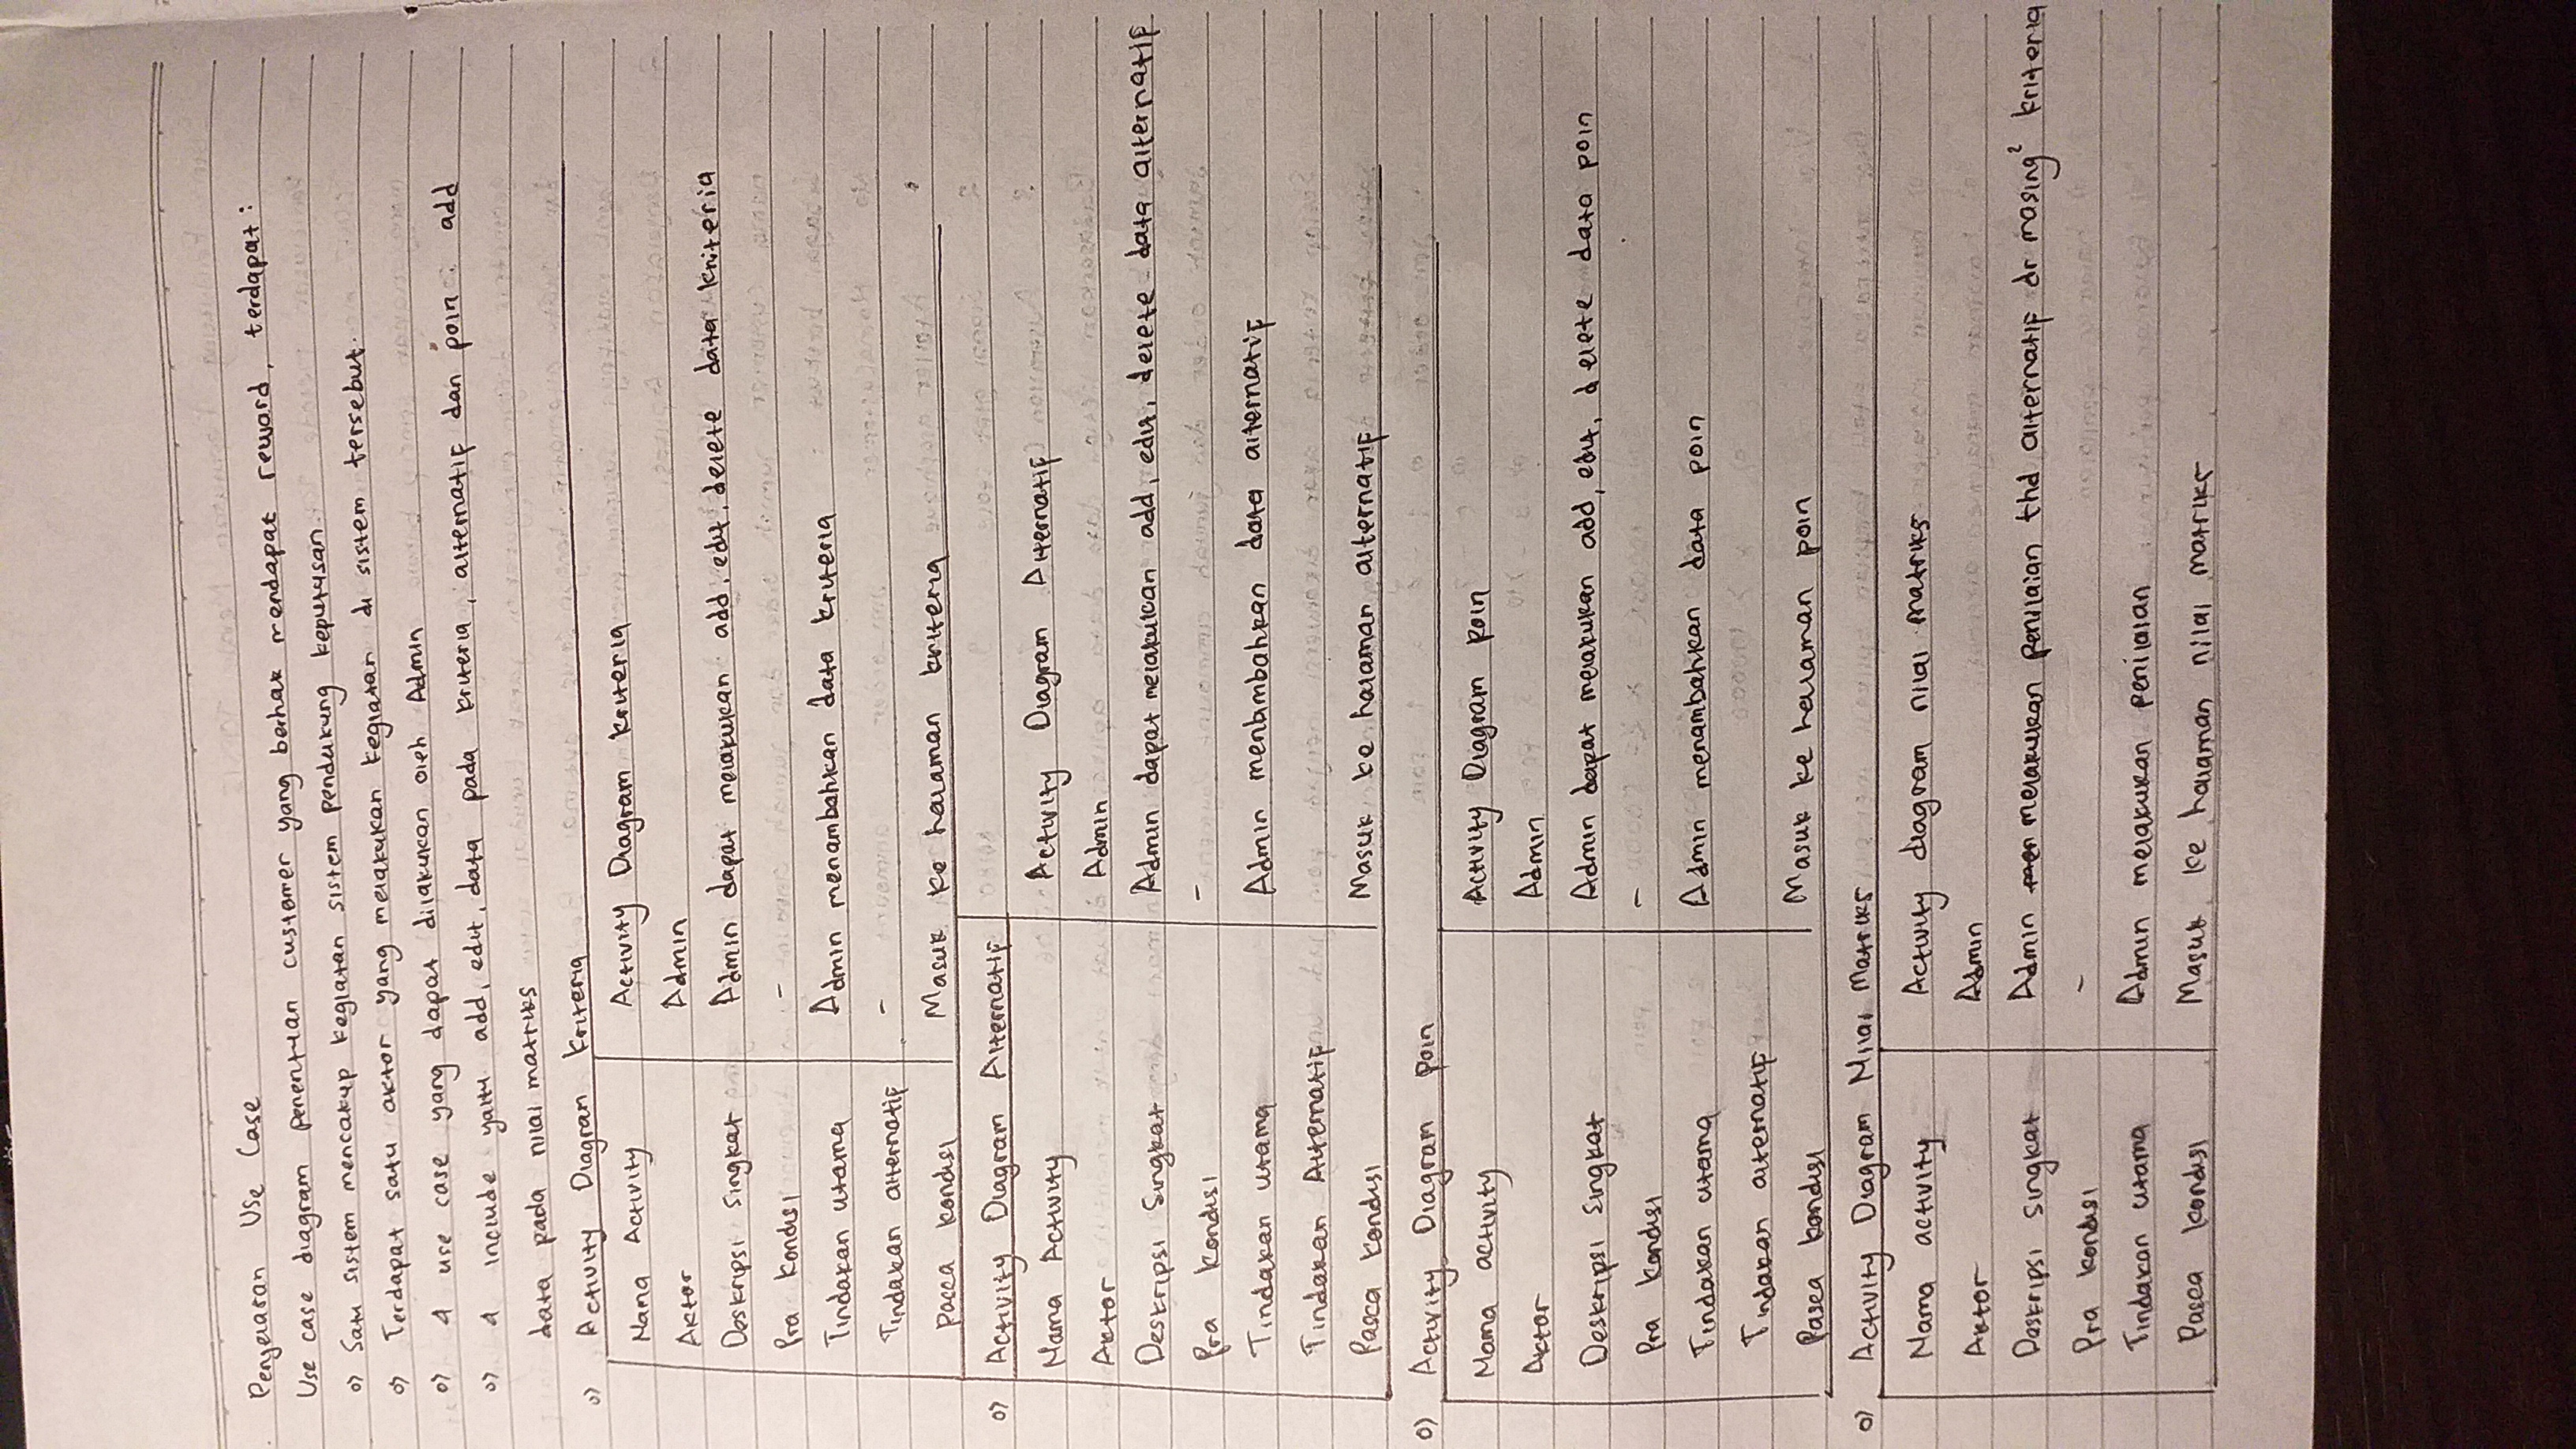 Penjelasan Use Case
Use case diagram penentuan customer yang berhak mendapat reward, terdapat :
o) Satu sistem mencakup kegiatan sistem pendukung keputusan.
o) Terdapat satu aktor yang melakukan kegiatan di sistem tersebut.
o) 4 use case yang dapat dilakukan oleh Admin
o) 4 include yaitu add, edit, data pada kriteria, alternatif dan poin . add
data pada nilai matriks
o) Activity Diagram Kriteria
Nama Activity Activity Diagram Kriteria
Aktor Admin
Deskripsi Singkat Admin dapat melakukan add, edit, delete data kriteria
Pra Kondisi -
Tindakan utama Admin menambahkan data kriteria
Tindakan alternatif -
Pasca kondisi Masuk ke halaman kriteria
o) Activity Diagram Alternatif
Nama Activity Activity Diagram Alternatif
Aktor Admin
Deskripsi Singkat Admin dapat melakukan add, edit, delete data alternatif
Pra kondisi -
Tindakan utama Admin menambahkan data alternatif
Tindakan Alternatif
Pasca kondisi Masuk ke halaman alternatif
o) Activity Diagram poin
Nama activity Activity Diagram poin
Aktor Admin
Deskripsi Singkat Admin dapat melakukan add, edit, delete data poin
Pra kondisi -
Tindakan utama Admin menambahkan data poin
Tindakan alternatif
Pasca kondisi Masuk ke halaman poin
o) Activity Diagram Nilai Matriks
Nama activity Activity diagram nilai matriks
Aktor Admin
Deskripsi singkat Admin melakukan penilaian thd alternatif dr masing² kriteria
Pra kondisi -
Tindakan utama Admin melakukan penilaian
Pasca kondisi Masuk ke halaman nilai matriks